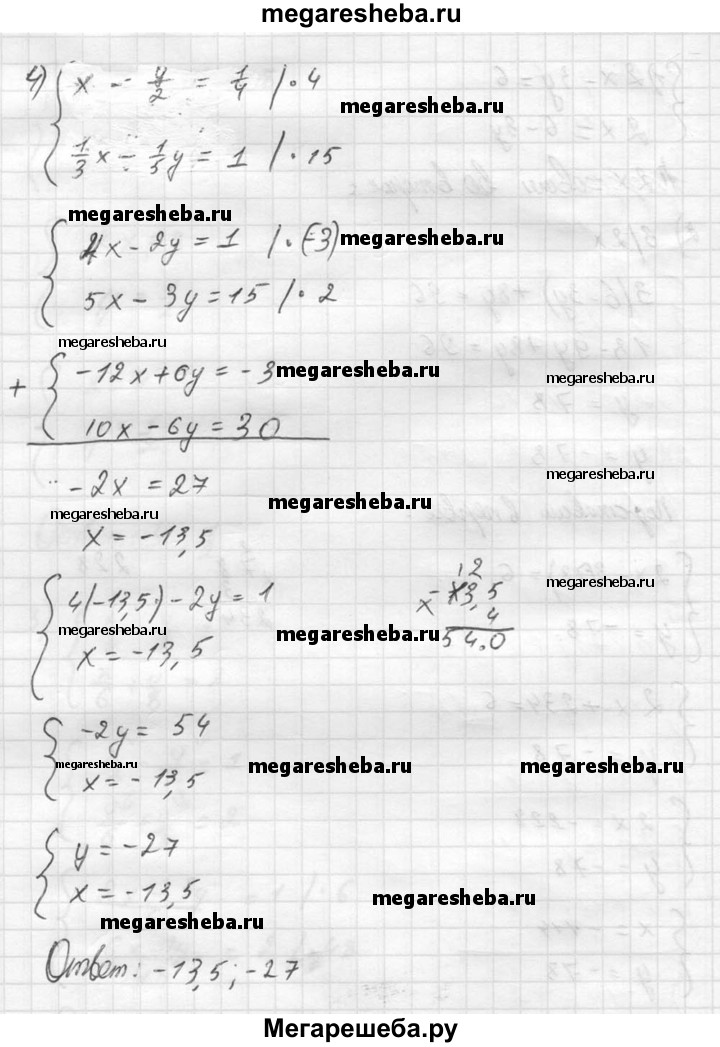 megaresheba.ru
4) { x - y/2 = 1/4 | · 4
megaresheba.ru
1/3 x - 1/5 y = 1 | · 15
megaresheba.ru
{ 4x - 2y = 1 | · (-3)
megaresheba.ru
5x - 3y = 15 | · 2
megaresheba.ru
+ { -12x + 6y = - 3
megaresheba.ru
megaresheba.ru
10x - 6y = 30
- 2x = 27
megaresheba.ru
megaresheba.ru
x = - 13,5
{ 4(-13,5) - 2y = 1
megaresheba.ru
megaresheba.ru
megaresheba.ru
x = - 13,5
12
× - 13,5
4
54.0
{ -2y = 54
megaresheba.ru
megaresheba.ru
megaresheba.ru
x = - 13,5
{ y = - 27
x = - 13,5
megaresheba.ru
megaresheba.ru
Ответ: - 13,5; - 27
Мегарешеба.ру